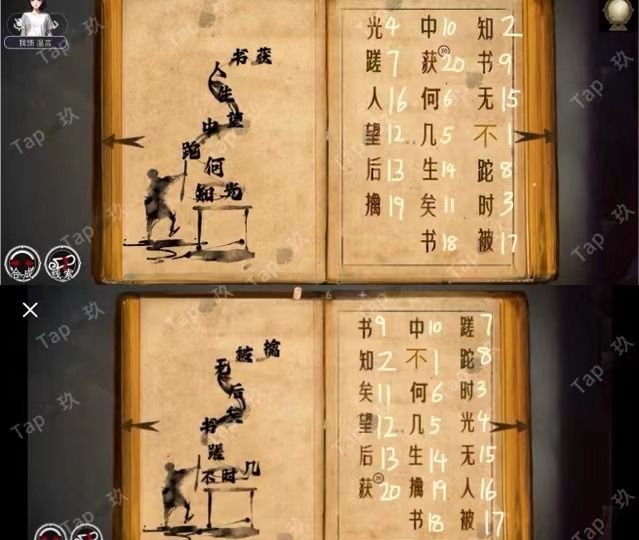 我饰 温言
书获
人
生
中望
跎何
知光
光4 中10 知2
蹉7 获20 书9
人16 何6 无15
望12 几5 不1
后13 生14 跎8
擒19 矣11 时3
书18 被17
合成 线索
被擒
无
后矣
书
蹉
不时几
书9 中10 蹉7
知2 不1 跎8
矣11 何6 时3
望12 几5 光4
后13 生14 无15
获20 擒19 人16
书18 被17
Tap 玖